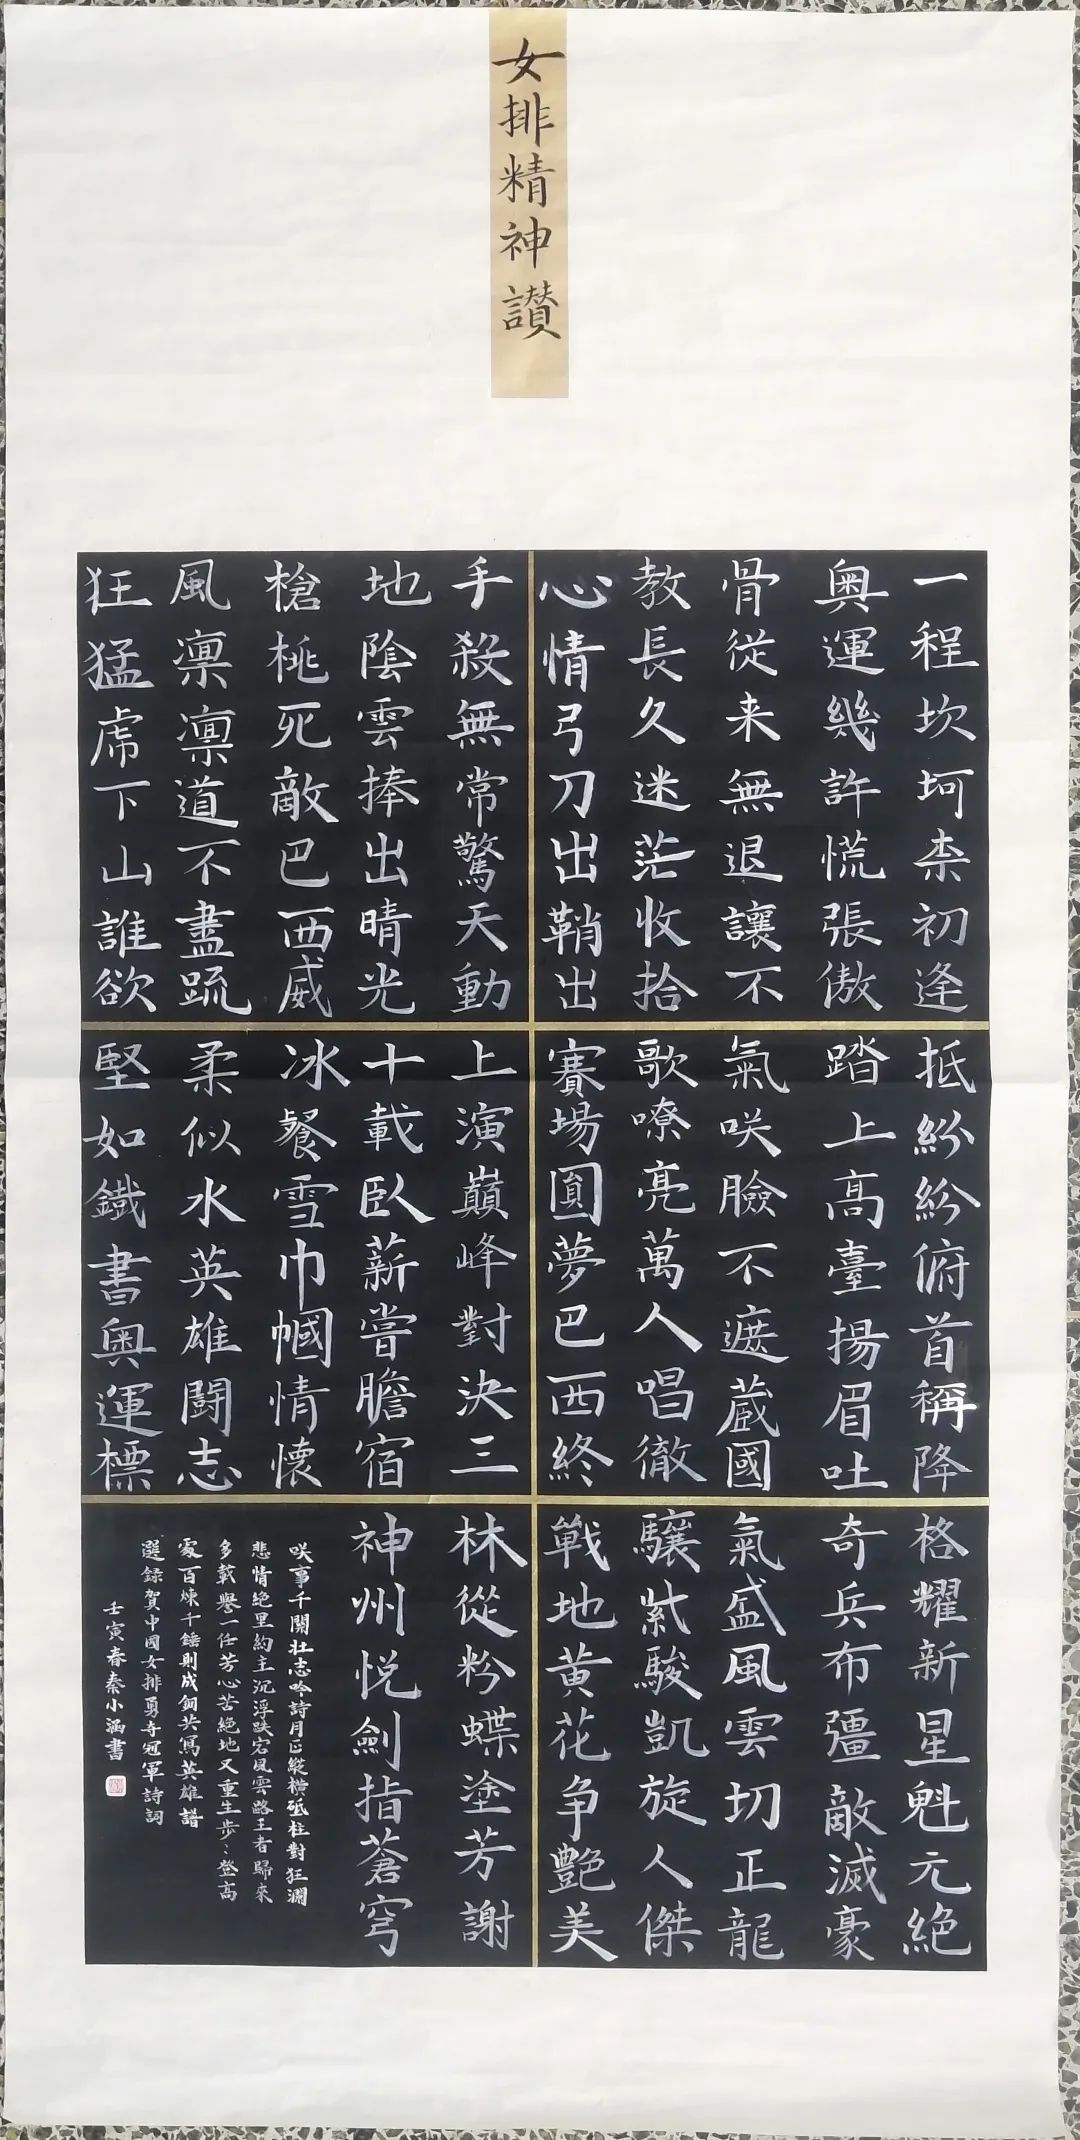 女排精神讚
一程坎坷柰初逢
奥運幾許慌張傲
骨從来無退讓不
教長久迷茫收拾
心情弓刀出鞘出
手殺無常驚天動
地陰雲捧出晴光
槍桃死敵巴西威
風凛凛道不盡疏
狂猛虎下山誰欲
抵紛紛俯首稱降
踏上高臺揚眉吐
氣咲臉不遮蔵國
歌嘹亮萬人唱徹
賽場圓夢巴西終
上演巔峰對決三
十載臥薪嘗膽宿
冰餐雪巾幗情懷
柔似水英雄鬪志
堅如鐵書奥運標
格耀新星魁元絶
奇兵布彊敵滅豪
氣盛風雲切正龍
驤紫駿凱旋人傑
戦地黄花争艶美
林從粉蝶塗芳謝
神州悦劍指蒼穹
咲事千關壮志吟詩月正縱横砥柱對狂瀾
悲情绝里約主沉浮跌宕風雲路王者歸來
多載譽一任芳心苦絶地又重生步〻登高
處百煉千錘則成鋼共寫英雄譜
選録賀中國女排勇夺冠軍詩詞
壬寅春秦小涵書